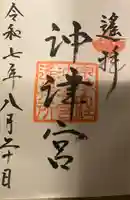 遙拝
沖津宮
令和七年八月二十日